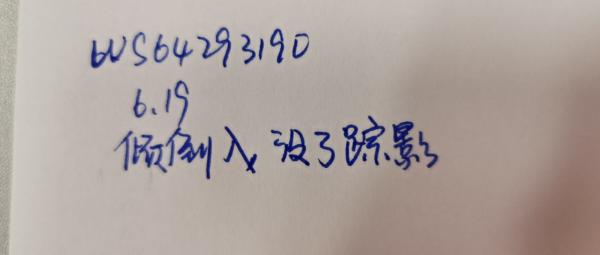 6US64293190
6.19
倾倒入,没了踪影